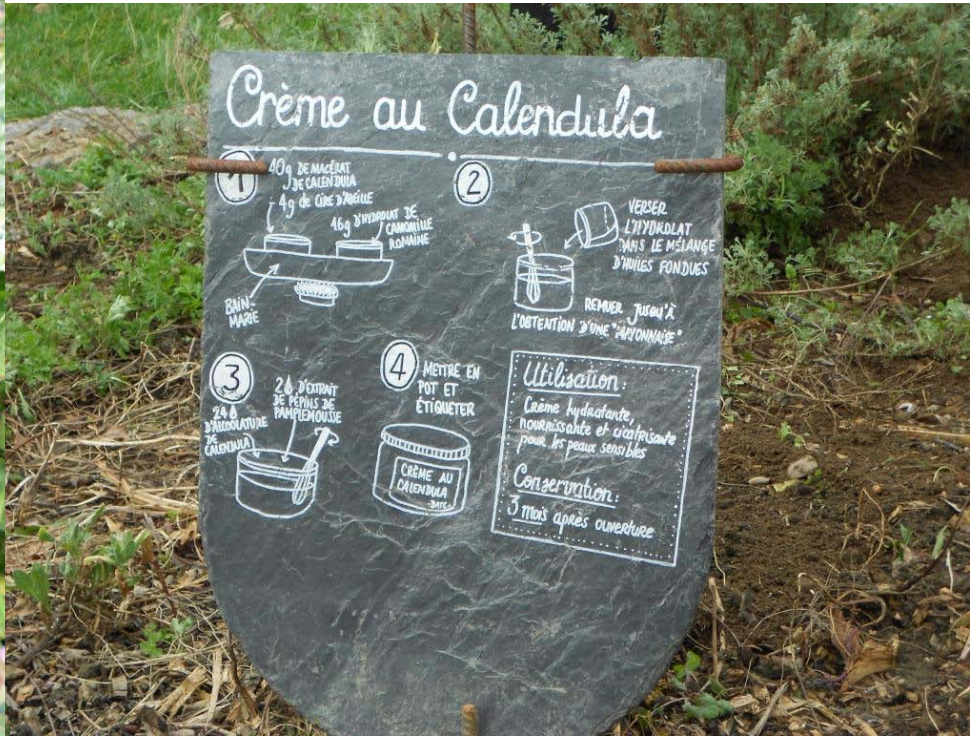 Crème au Calendula
1
40g DE MACÉRAT
DE CALENDULA
4g de CIRE D'ABEILLE
16g D'HYDROLAT DE
CAMOMILLE
ROMAINE
BAIN-
MARIE
2
VERSER
L'HYDROLAT
DANS LE MÉLANGE
D'HUILES FONDUES
REMUER JUSQU'À
L'OBTENTION D'UNE "MAYONNAISE"
3
24
D'ALCOOLATURE
DE
CALENDULA
2 D'EXTRAIT
DE PÉPINS DE
PAMPLEMOUSSE
4
METTRE EN
POT ET
ÉTIQUETER
CRÈME AU
CALENDULA
-DATE-
Utilisation:
Crème hydratante,
nourrissante et cicatrisante
pour les peaux sensibles
Conservation:
3 mois après ouverture